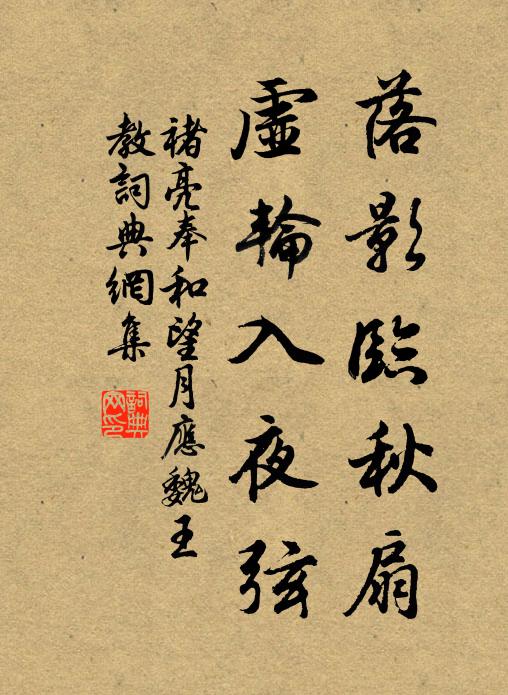 落影臨秋扇
虛輪入夜弦
褚亮奉和望月應魏王
教詞典網集
詞典
网印